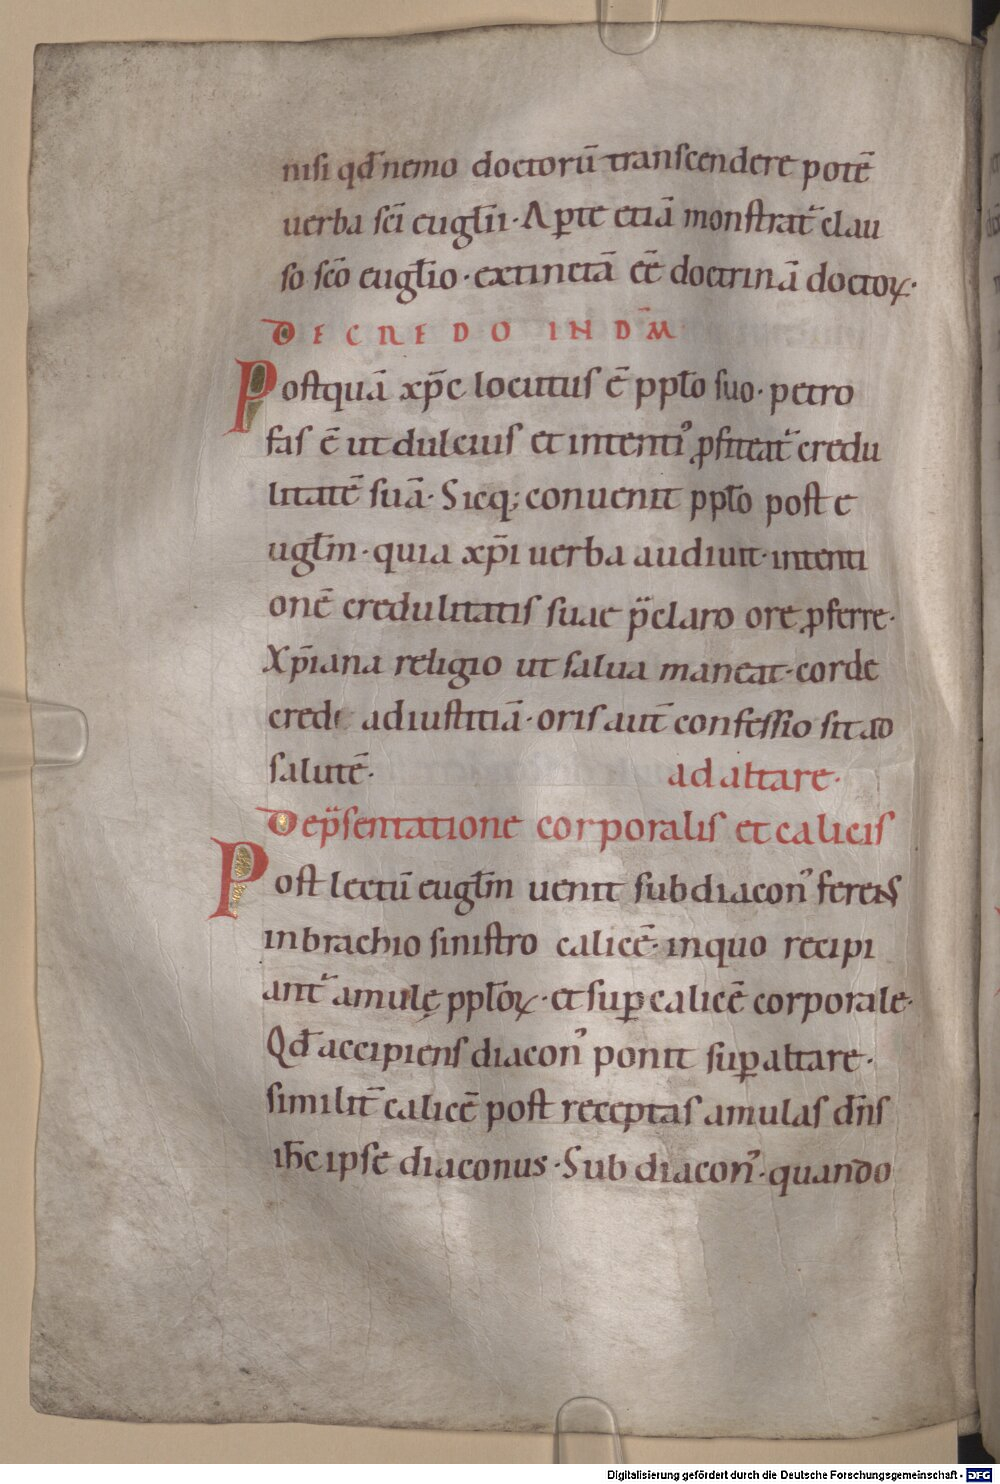 nisi qđ nemo doctorū transcendere potē
uerba sc̄i eugłii· Aꝑte etiā monstrat᷑ clau
so sc̄o eugłio· extinctā eē doctrinā doctoꝝ·
DE CREDO IN DM̄·
Postquā xp̄c locutus ē ppło suo· petro
fas ē ut dulcius et intentiꝰ ꝓfiteat᷑ credu
litatē suā· Sicq; conuenit ppło post e
ugłm· quia xp̄i uerba audiuit· intenti
onē credulitatis suae p̈claro ore ꝓferre·
Xp̄iana religio ut salua maneat· corde
credi adiustitiā· oris aut̄ confessio sit ad
salutē·
ad altare·
De p̈sentatione corporalis et calicis
Post lectū eugłm uenit subdiaconꝰ ferens
inbrachio sinistro calicē· inquo recipi
ant᷑ amulę ppłoꝝ· et suꝑ calicē corporale·
Qđ accipiens diaconꝰ ponit suꝑ altare·
similit̄ calicē post receptas amulas dn̄s
ih̄c ipse diaconus· Subdiaconꝰ· quando
Digitalisierung gefördert durch die Deutsche Forschungsgemeinschaft - DFG